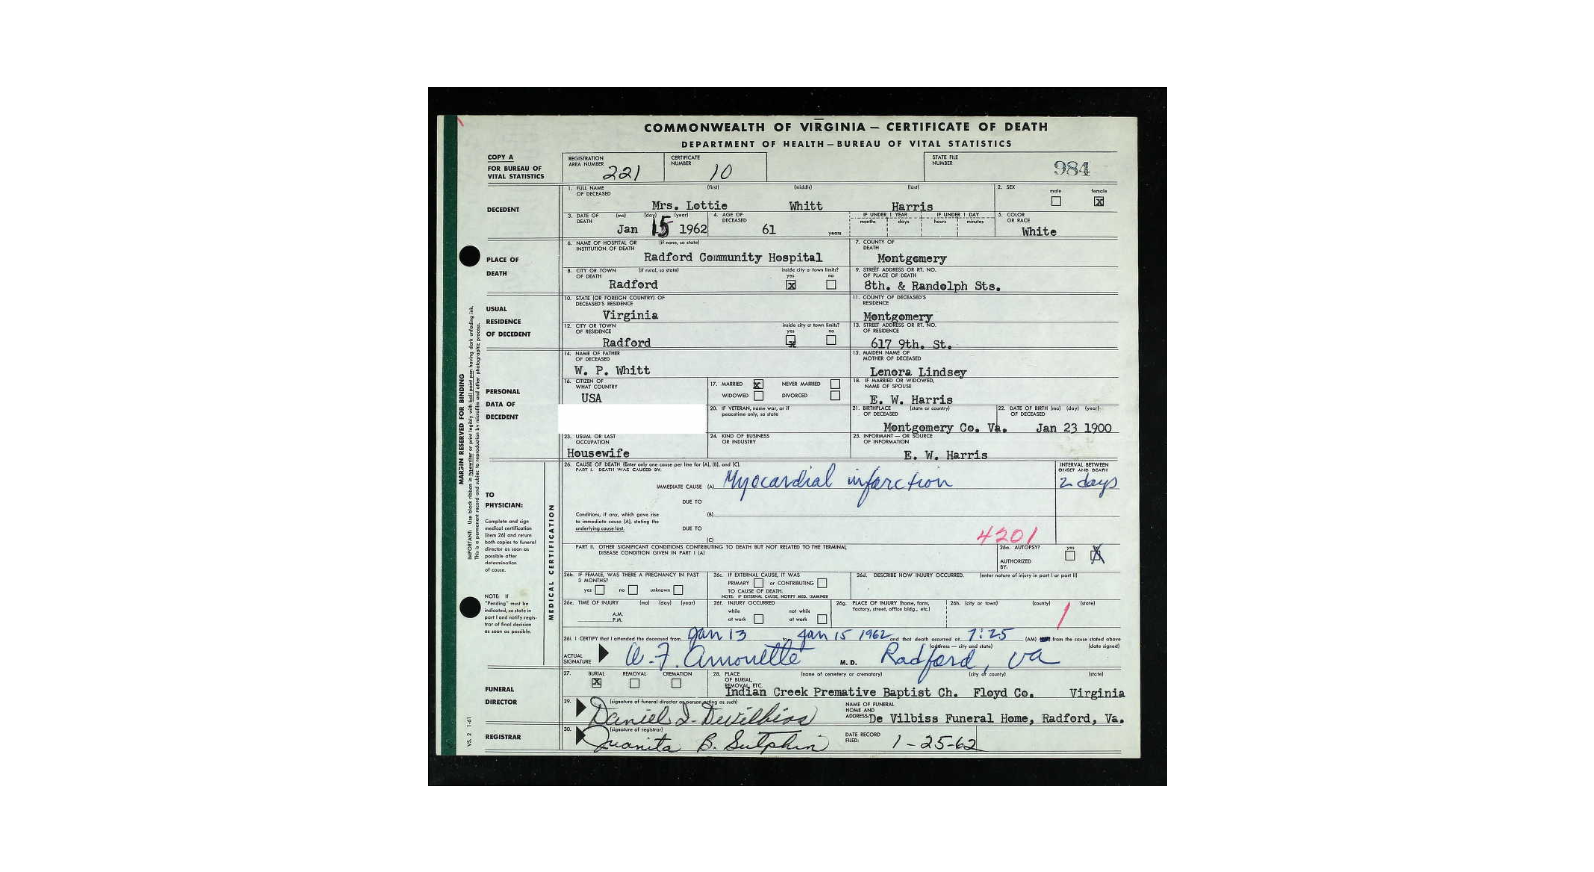 COMMONWEALTH OF VIRGINIA — CERTIFICATE OF DEATH
DEPARTMENT OF HEALTH — BUREAU OF VITAL STATISTICS
COPY A
FOR BUREAU OF
VITAL STATISTICS
REGISTRATION
AREA NUMBER
221
CERTIFICATE
NUMBER
10
STATE FILE
NUMBER
984
DECEDENT
1. FULL NAME
OF DECEASED
(first) (middle) (last)
Mrs. Lottie Whitt Harris
2. SEX
male female
x
3. DATE OF
DEATH
(mo) (day) (year)
Jan 15 1962
4. AGE OF
DECEASED
61
years
IF UNDER 1 YEAR
months days
IF UNDER 1 DAY
hours minutes
5. COLOR
OR RACE
White
PLACE OF
DEATH
6. NAME OF HOSPITAL OR
INSTITUTION OF DEATH
(if none, so state)
Radford Community Hospital
7. COUNTY OF
DEATH
Montgomery
8. CITY OR TOWN
OF DEATH
(if rural, so state)
Radford
inside city or town limits?
yes no
x
9. STREET ADDRESS OR RT. NO.
OF PLACE OF DEATH
8th. & Randolph Sts.
USUAL
RESIDENCE
OF DECEDENT
10. STATE (OR FOREIGN COUNTRY) OF
DECEASED'S RESIDENCE
Virginia
11. COUNTY OF DECEASED'S
RESIDENCE
Montgomery
12. CITY OR TOWN
OF RESIDENCE
Radford
inside city or town limits?
yes no
x
13. STREET ADDRESS OR RT. NO.
OF RESIDENCE
617 9th. St.
PERSONAL
DATA OF
DECEDENT
14. NAME OF FATHER
OF DECEASED
W. P. Whitt
15. MAIDEN NAME OF
MOTHER OF DECEASED
Lenora Lindsey
16. CITIZEN OF
WHAT COUNTRY
USA
17. MARRIED x NEVER MARRIED
WIDOWED DIVORCED
18. IF MARRIED OR WIDOWED,
NAME OF SPOUSE
E. W. Harris
20. IF VETERAN, name war, or if
peacetime only, so state
21. BIRTHPLACE
OF DECEASED
(state or country)
Montgomery Co. Va.
22. DATE OF BIRTH (mo) (day) (year)
OF DECEASED
Jan 23 1900
23. USUAL OR LAST
OCCUPATION
Housewife
24. KIND OF BUSINESS
OR INDUSTRY
25. INFORMANT — OR SOURCE
OF INFORMATION
E. W. Harris
MARGIN RESERVED FOR BINDING
VS. 2 1-61
TO
PHYSICIAN:
Complete and sign
medical certification
(item 26) and return
both copies to funeral
director as soon as
possible after
determination
of cause.
NOTE: If
"Pending" must be
indicated, so state in
part I and notify regis-
trar of final decision
as soon as possible.
MEDICAL CERTIFICATION
26. CAUSE OF DEATH (Enter only one cause per line for (A), (B), and (C).
PART I. DEATH WAS CAUSED BY:
INTERVAL BETWEEN
ONSET AND DEATH
IMMEDIATE CAUSE (A) Myocardial infarction 2 days
DUE TO
Conditions, if any, which gave rise
to immediate cause (A), stating the
underlying cause last.
(B)
DUE TO
(C)
4201
PART II. OTHER SIGNIFICANT CONDITIONS CONTRIBUTING TO DEATH BUT NOT RELATED TO THE TERMINAL
DISEASE CONDITION GIVEN IN PART I (A)
26a. AUTOPSY?
yes
X
AUTHORIZED
BY:
26b. IF FEMALE, WAS THERE A PREGNANCY IN PAST
3 MONTHS?
yes no unknown
26c. IF EXTERNAL CAUSE, IT WAS
PRIMARY or CONTRIBUTING
TO CAUSE OF DEATH.
NOTE: IF EXTERNAL CAUSE, NOTIFY MED. EXAMINER
26d. DESCRIBE HOW INJURY OCCURRED. (enter nature of injury in part I or part II)
26e. TIME OF INJURY (mo) (day) (year)
A.M.
P.M.
26f. INJURY OCCURRED
while not while
at work at work
26g. PLACE OF INJURY (home, farm,
factory, street, office bldg., etc.)
26h. (city or town) (county) (state)
26i. I CERTIFY that I attended the deceased from Jan 13 to Jan 15 1962 and that death occurred at 7:25 (AM) from the cause stated above
(address — city and state) (date signed)
ACTUAL
SIGNATURE
W. F. Amonette M. D. Radford, Va
FUNERAL
DIRECTOR
27. BURIAL REMOVAL CREMATION
x
28. PLACE
OF BURIAL
REMOVAL, ETC.
(name of cemetery or crematory) (city or county) (state)
Indian Creek Premative Baptist Ch. Floyd Co. Virginia
29.
(signature of funeral director or person acting as such)
Daniel I. DeVilbiss
NAME OF FUNERAL
HOME AND
ADDRESS:
De Vilbiss Funeral Home, Radford, Va.
REGISTRAR
30.
(signature of registrar)
Juanita B. Sutphin
DATE RECORD
FILED:
1-25-62